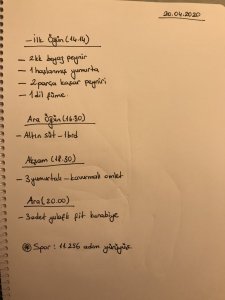 20.04.2020
- İlk Öğün (14.14)
- 2kk beyaz peynir
- 1 haşlanmış yumurta
- 2 parça kaşar peyniri
- 1 dil füme
Ara Öğün (16.30)
- Altın süt - 1brd
Akşam (18.30)
- 3 yumurtalı - kavurmalı omlet
Ara (20.00)
- 3 adet yulaflı fit kurabiye
* Spor: 11.256 adım yürüyüş